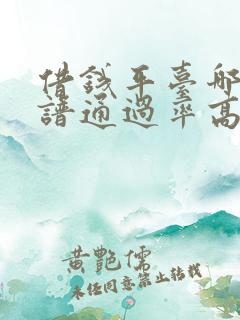 借錢平臺哪
譜通過率高
黃艷儒
未经同意禁止转载